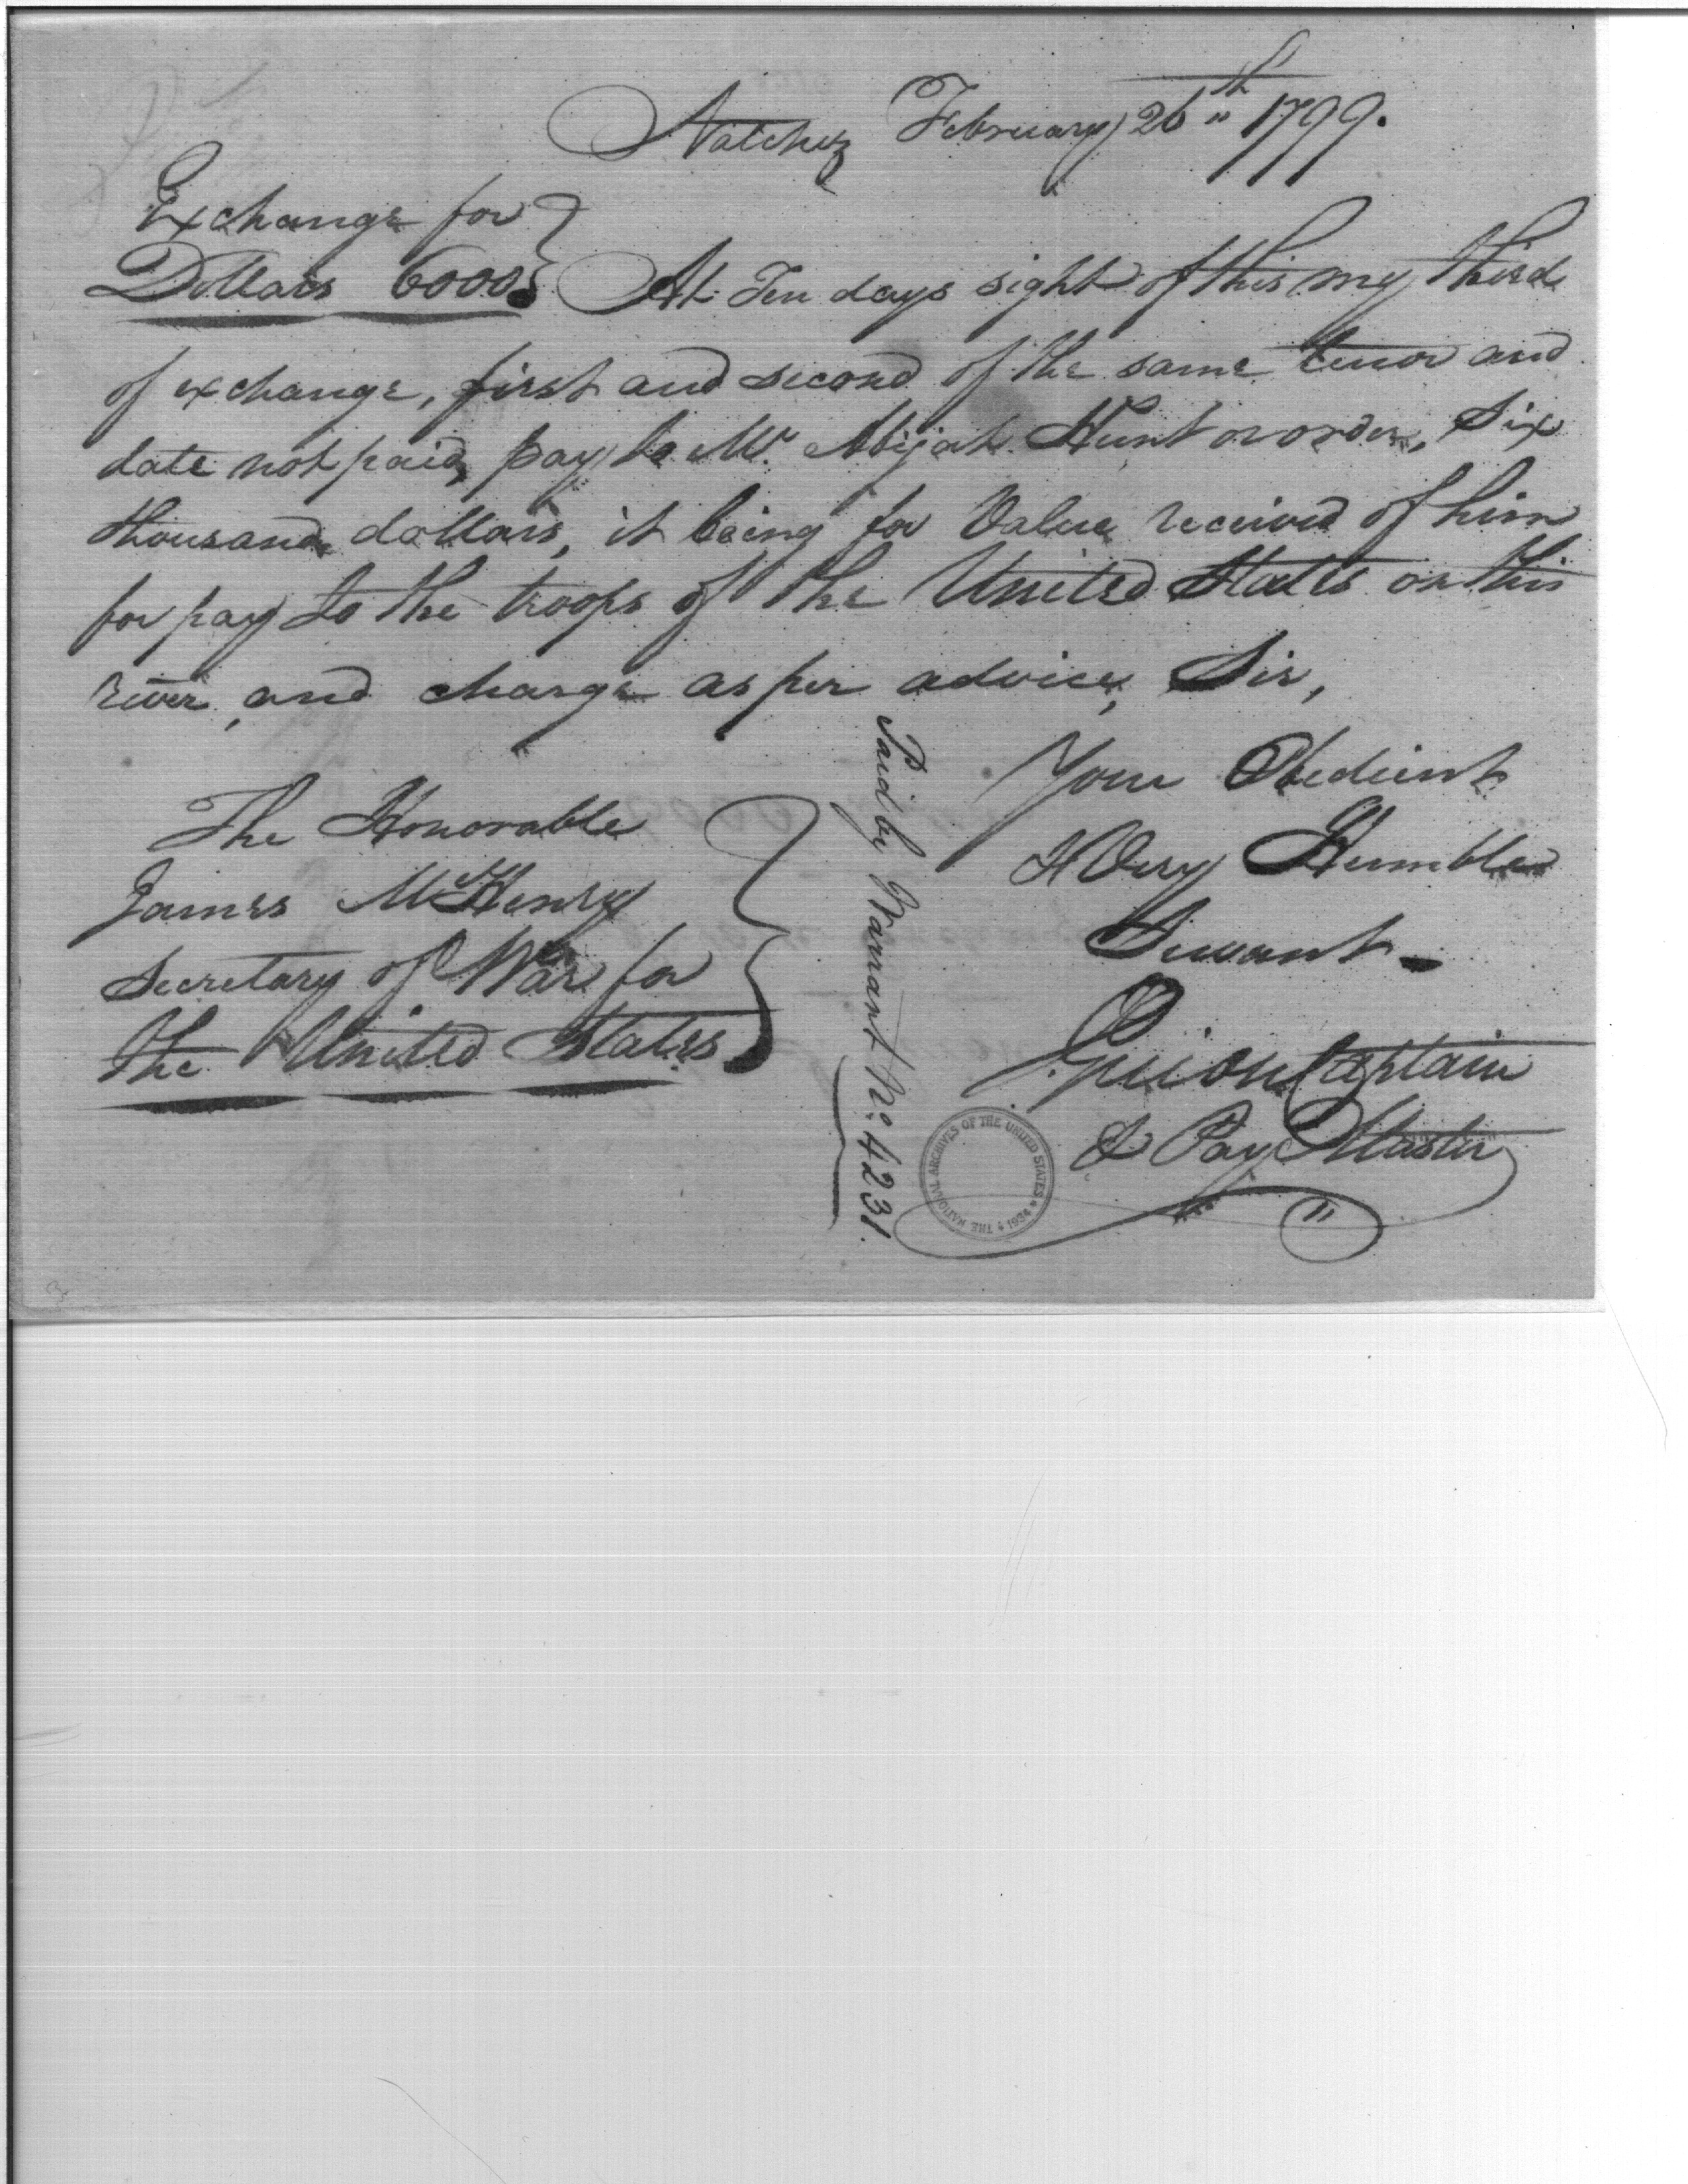 Natchez February 26th 1799.
Exchange for
Dollars 6000. At Ten days sight of this my third
of exchange, first and second of the same tenor and
date not paid, pay to Mr. Abijah Hunt or order, Six
thousand dollars, it being for Value received of him
for pay to the troops of the United States on this
river, and charge as per advice, Sir,
Your Obedient
& Very Humble
Servant
Guion Captain
& Pay Master
The Honorable
James McHenry
Secretary of War for
the United States
Paid by Warrant No. 4231.
THE NATIONAL ARCHIVES OF THE UNITED STATES * 1934 *